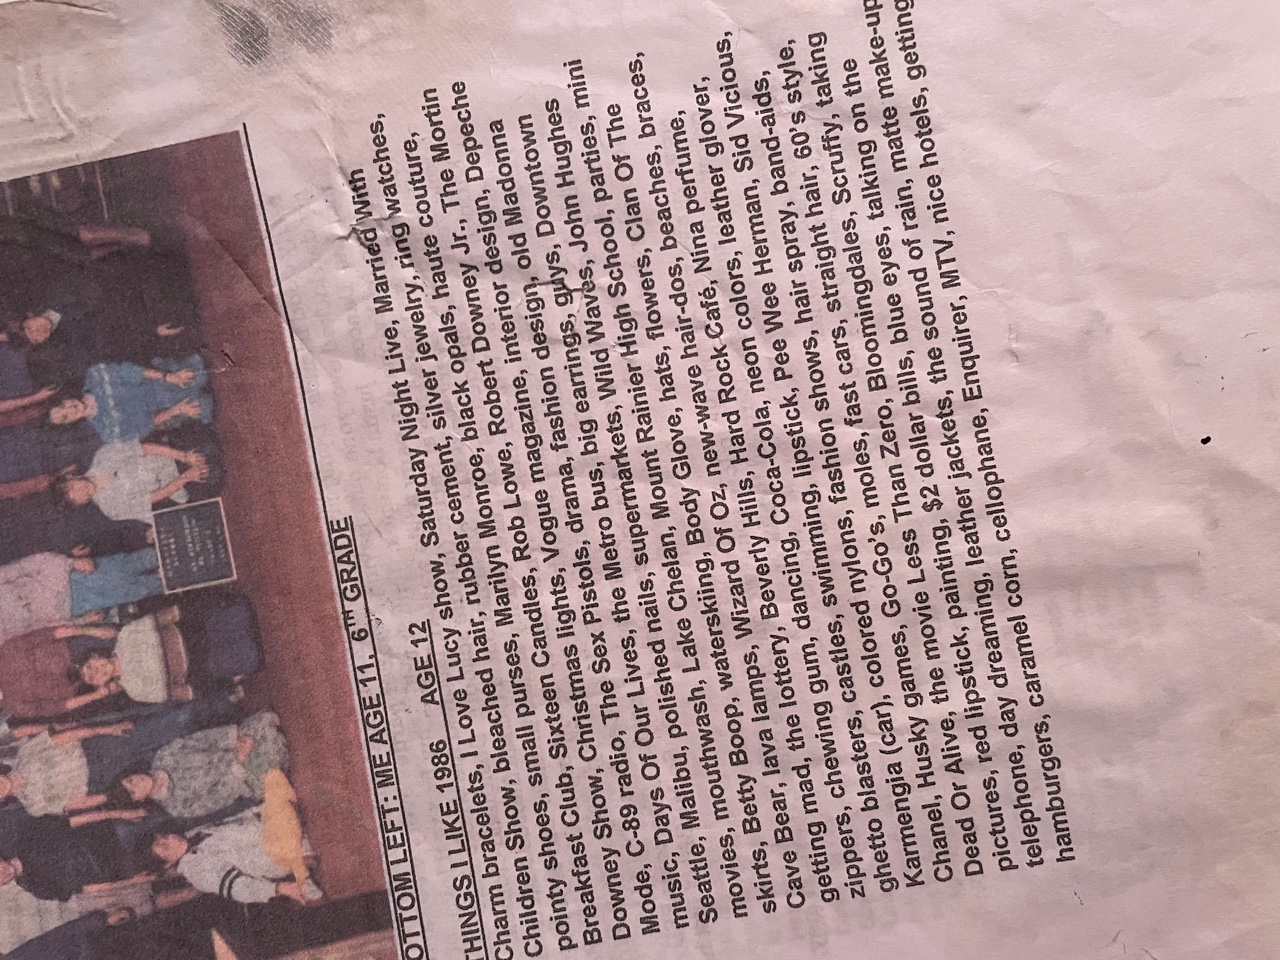 OTTOM LEFT: ME AGE 11. 6TH GRADE
THINGS I LIKE 1986 AGE 12
Charm bracelets, I Love Lucy show, Saturday Night Live, Married With
Children Show, bleached hair, rubber cement, silver jewelry, ring watches,
pointy shoes, small purses, Marilyn Monroe, black opals, haute couture,
Breakfast Club, Sixteen Candles, Rob Lowe, Robert Downey Jr., The Mortin
Downey Show, Christmas lights, Vogue magazine, interior design, Depeche
Mode, C-89 radio, The Sex Pistols, drama, fashion design, old Madonna
music, Days Of Our Lives, the Metro bus, big earrings, guys, Downtown
Seattle, Malibu, polished nails, supermarkets, Wild Waves, John Hughes
movies, mouthwash, waterskiing, Lake Chelan, Mount Rainier High School, parties, mini
skirts, Betty Boop, Body Glove, hats, flowers, Clan Of The
Cave Bear, lava lamps, Wizard Of Oz, new-wave hair-dos, beaches, braces,
getting mad, the lottery, Beverly Hills, Hard Rock Café, Nina perfume,
zippers, chewing gum, dancing, Coca-Cola, neon colors, leather glover,
ghetto blasters, castles, swimming, lipstick, Pee Wee Herman, Sid Vicious,
Karmengia (car), colored nylons, fashion shows, hair spray, band-aids,
Chanel, Husky games, Go-Go's, moles, fast cars, straight hair, 60's style,
Dead Or Alive, the movie Less Than Zero, Bloomingdales, Scruffy, taking
pictures, red lipstick, painting, $2 dollar bills, blue eyes, talking on the
telephone, day dreaming, leather jackets, the sound of rain, matte make-up
hamburgers, caramel corn, cellophane, Enquirer, MTV, nice hotels, getting